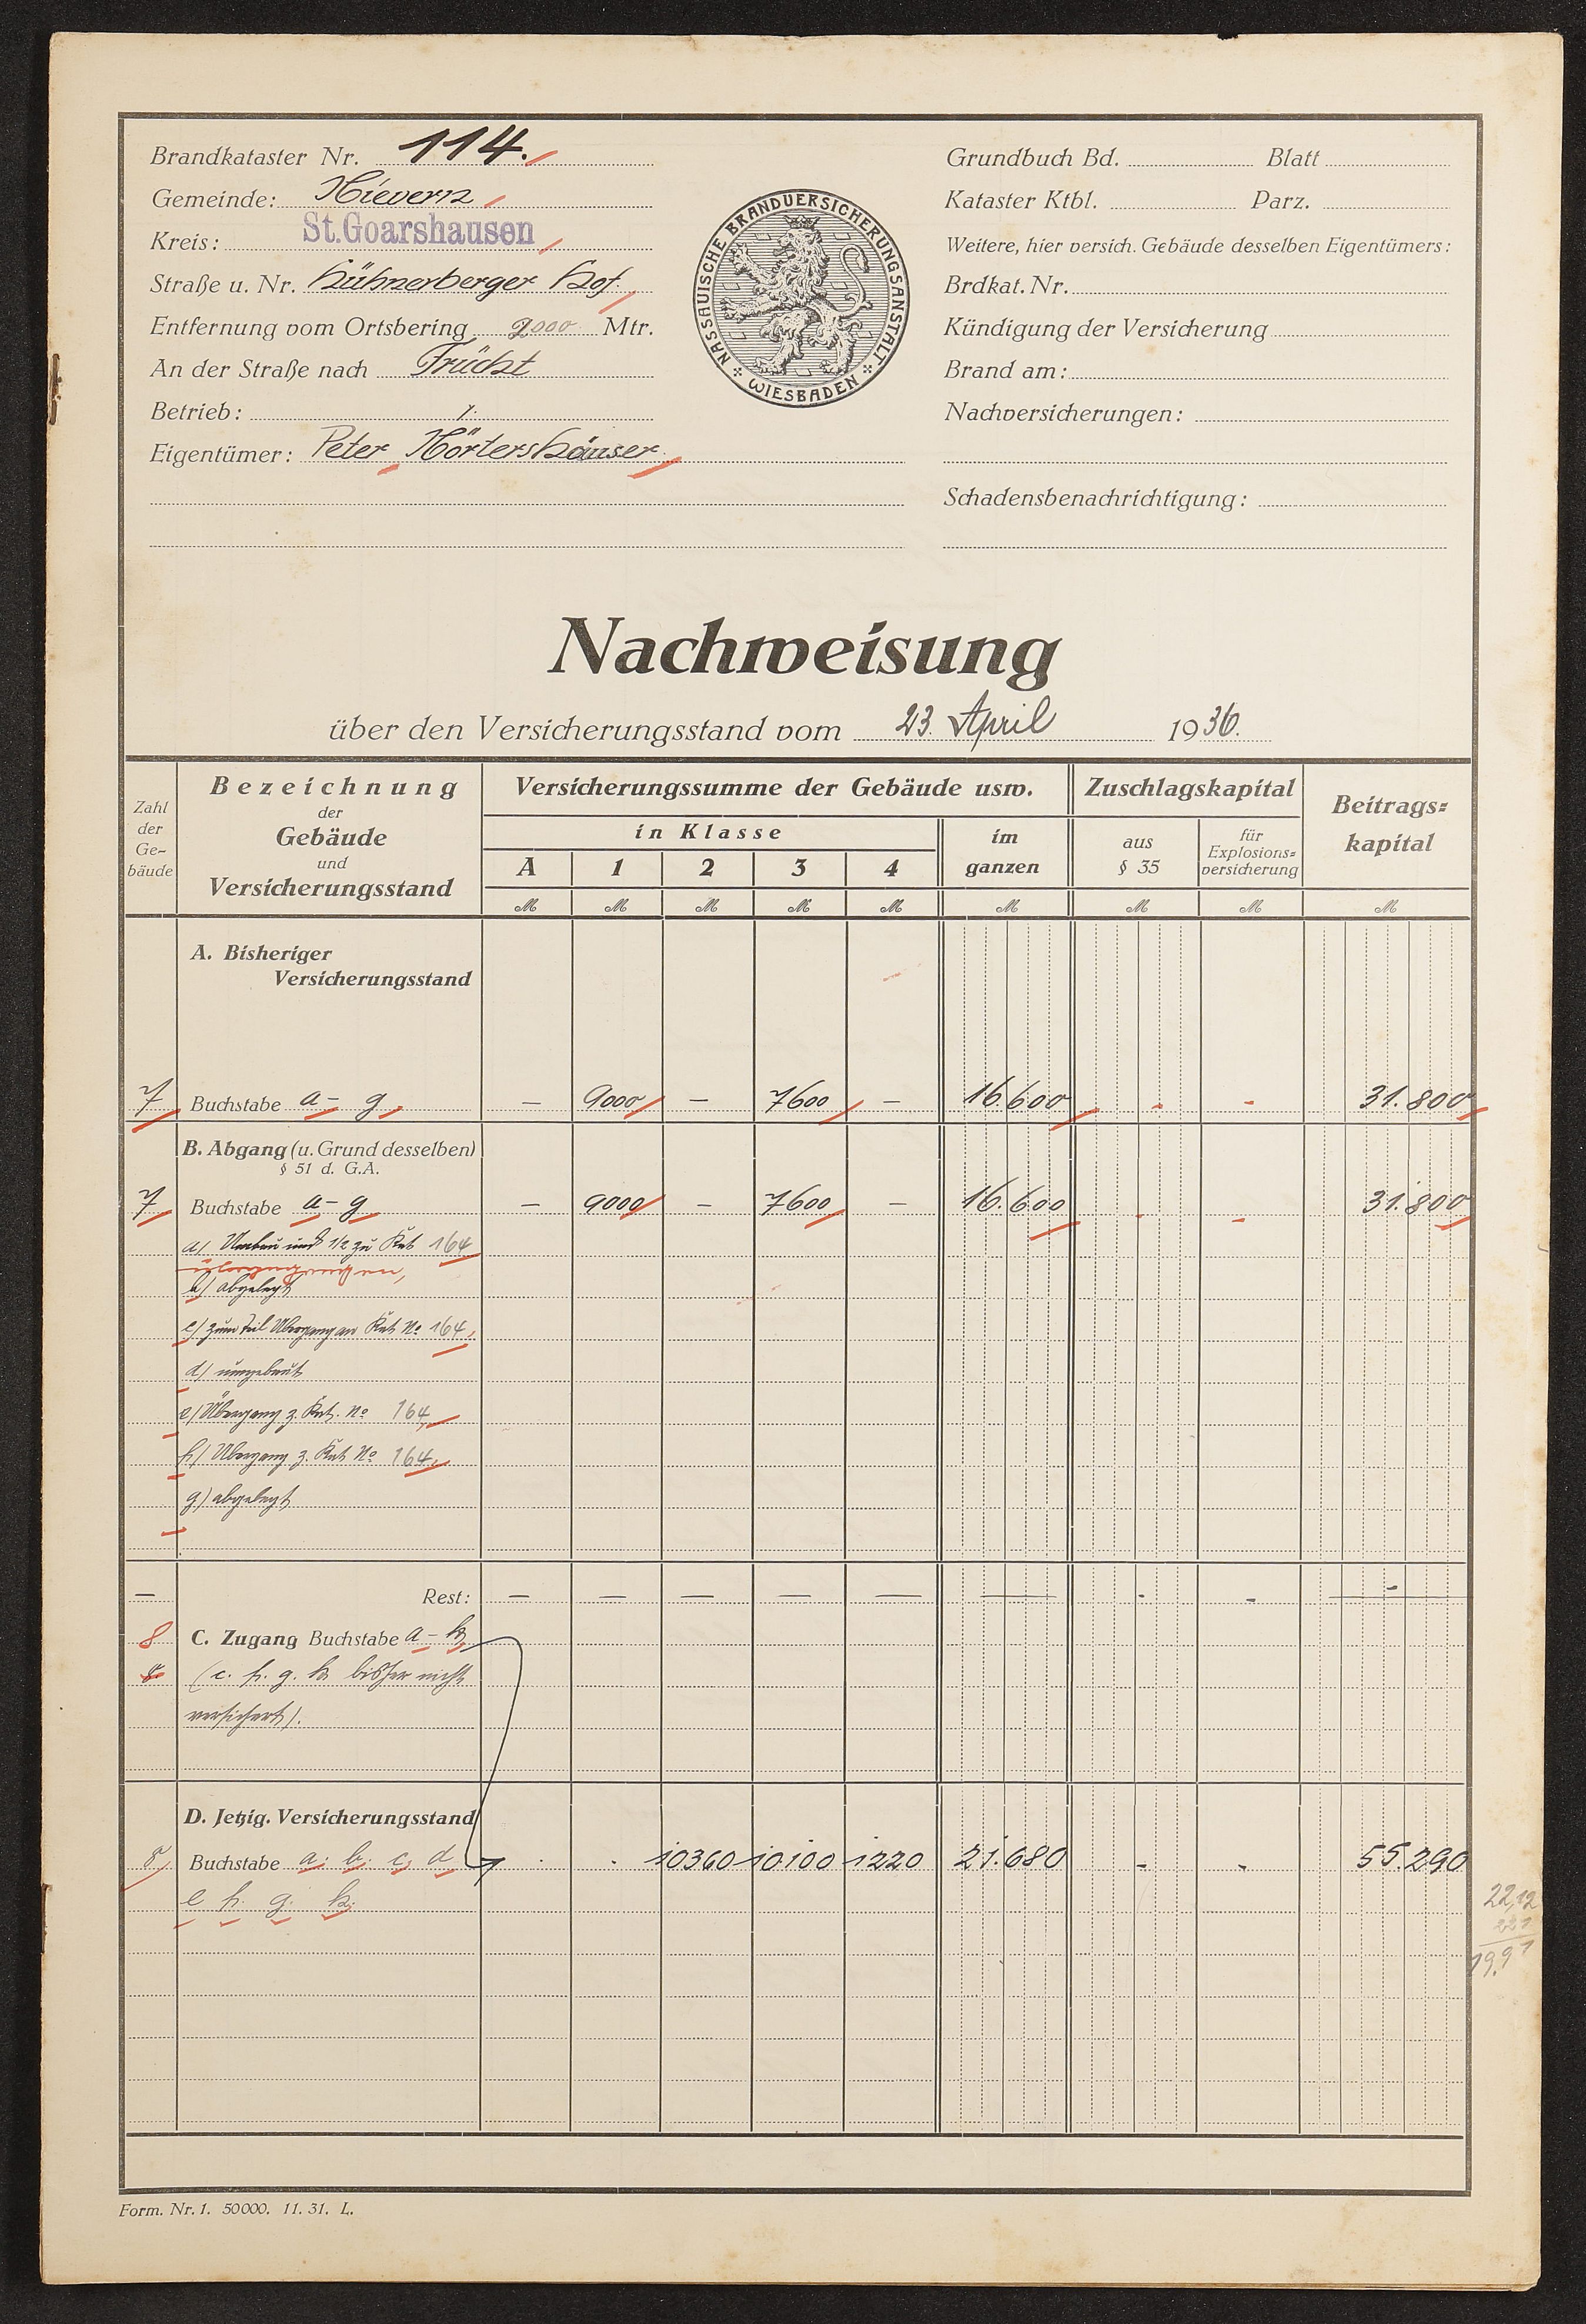 Brandkataster Nr. 114.
Gemeinde: Nievern
Kreis: St. Goarshausen
Straße u. Nr. Hühnerberger Hof.
Entfernung vom Ortsbering 2000 Mtr.
An der Straße nach Frücht
Betrieb: /.
Eigentümer: Peter Hörtershäuser
NASSAUISCHE BRANDVERSICHERUNGSANSTALT
WIESBADEN
Grundbuch Bd. Blatt
Kataster Ktbl. Parz.
Weitere, hier versich. Gebäude desselben Eigentümers:
Brdkat. Nr.
Kündigung der Versicherung
Brand am:
Nachversicherungen:
Schadensbenachrichtigung:
Nachweisung
über den Versicherungsstand vom 23. April 1936.
Zahl der Ge-bäude
Bezeichnung der Gebäude und Versicherungsstand
Versicherungssumme der Gebäude usw.
in Klasse
A 1 2 3 4
im ganzen
Zuschlagskapital
aus § 35
für Explosions=versicherung
Beitrags=kapital
M M M M M M M M M
A. Bisheriger
Versicherungsstand
7 Buchstabe a - g, — 9000 — 7600 — 16.600 - - 31.800
B. Abgang (u. Grund desselben)
§ 51 d. G.A.
7 Buchstabe a - g — 9000 — 7600 — 16.600 - - 31.800
a) Umbau und 1/2 zu Kat 164
übergegangen,
b) abgelegt
c) zum Teil Übergang an Kat No 164,
d) umgebaut
e) Übergang z. Kat. No 164
f) Übergang z. Kat No 164.
g) abgelegt
— Rest: — — — — — — - - —
8 C. Zugang Buchstabe a - h
8 (c. f. g. h bisher nicht
versichert).
D. Jetzig. Versicherungsstand
8 Buchstabe a. b. c. d . . 10360 10100 1220 21.680 - - 55.290
e f. g. h.
22,12
221
19,91
Form. Nr. 1. 50000. 11. 31. L.